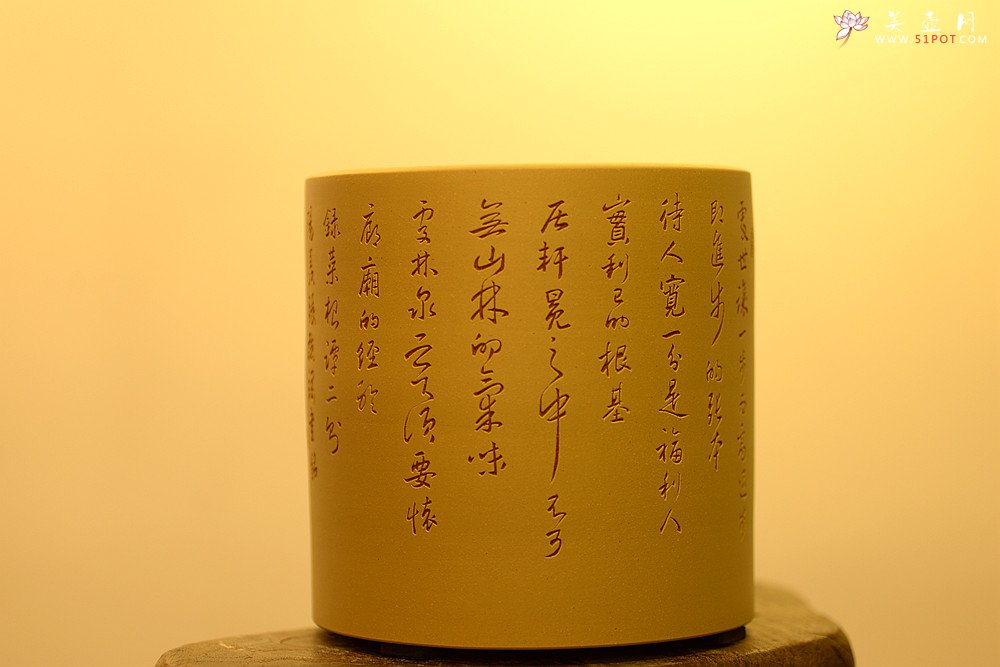 處世讓一步為高退步
即進步的張本
待人寬一分是福利人
實利己的根基
居軒冕之中不可
無山林的氣味
處林泉之下須要懷
廊廟的經綸
錄菜根譚二則
WWW.51POT.COM